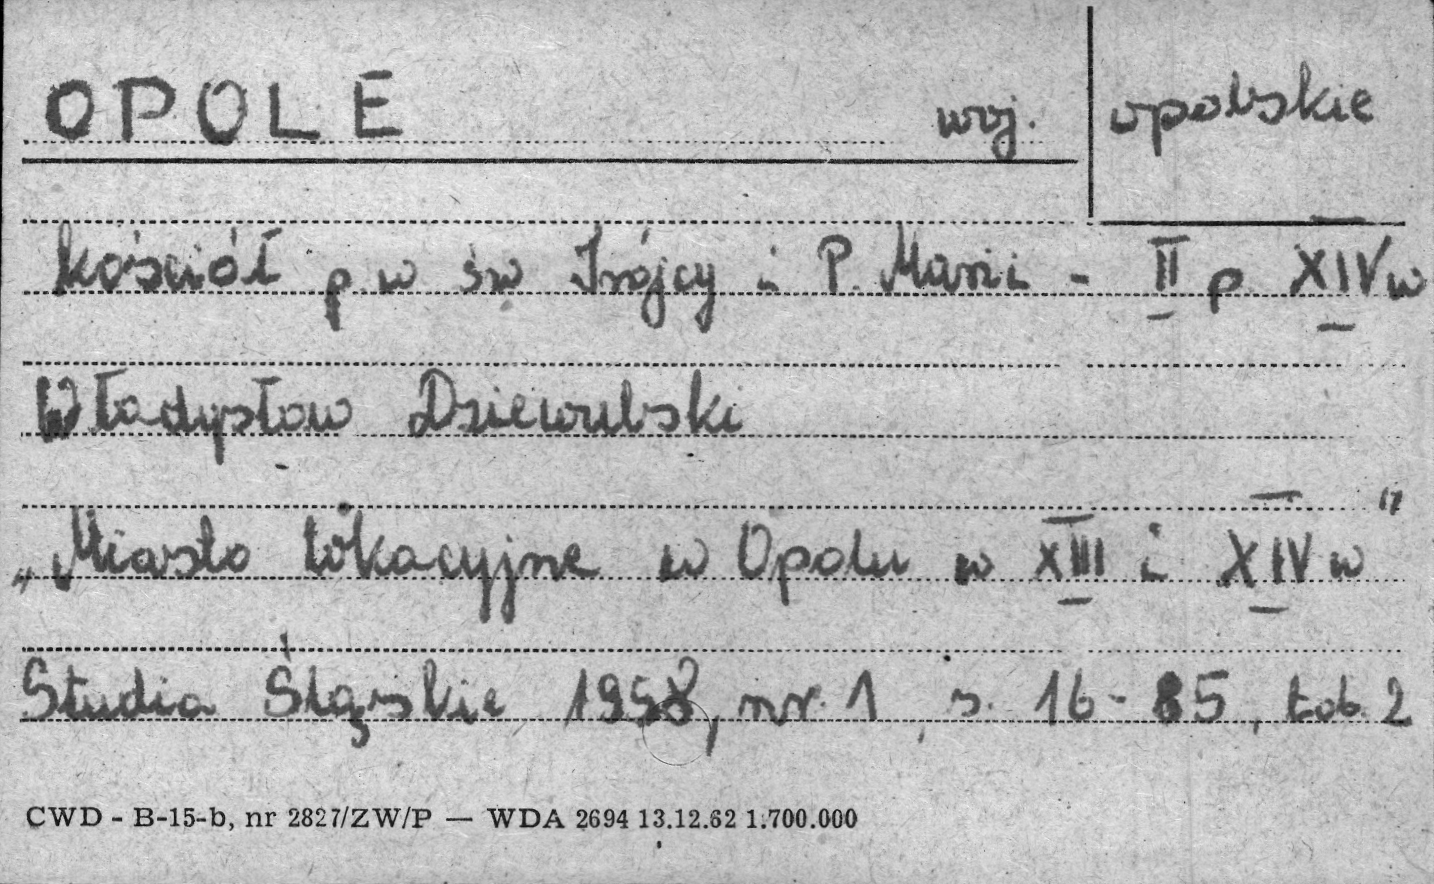 OPOLE woj. opolskie
kościół p w św Trójcy i P. Marii - II p XIV w
Władysław Dziewulski
„Miasto lokacyjne w Opolu w XIII i XIV w"
Studia Śląskie 1958, nr. 1, s. 16-85, tab. 2
CWD - B-15-b, nr 2827/ZW/P — WDA 2694 13.12.62 1.700.000